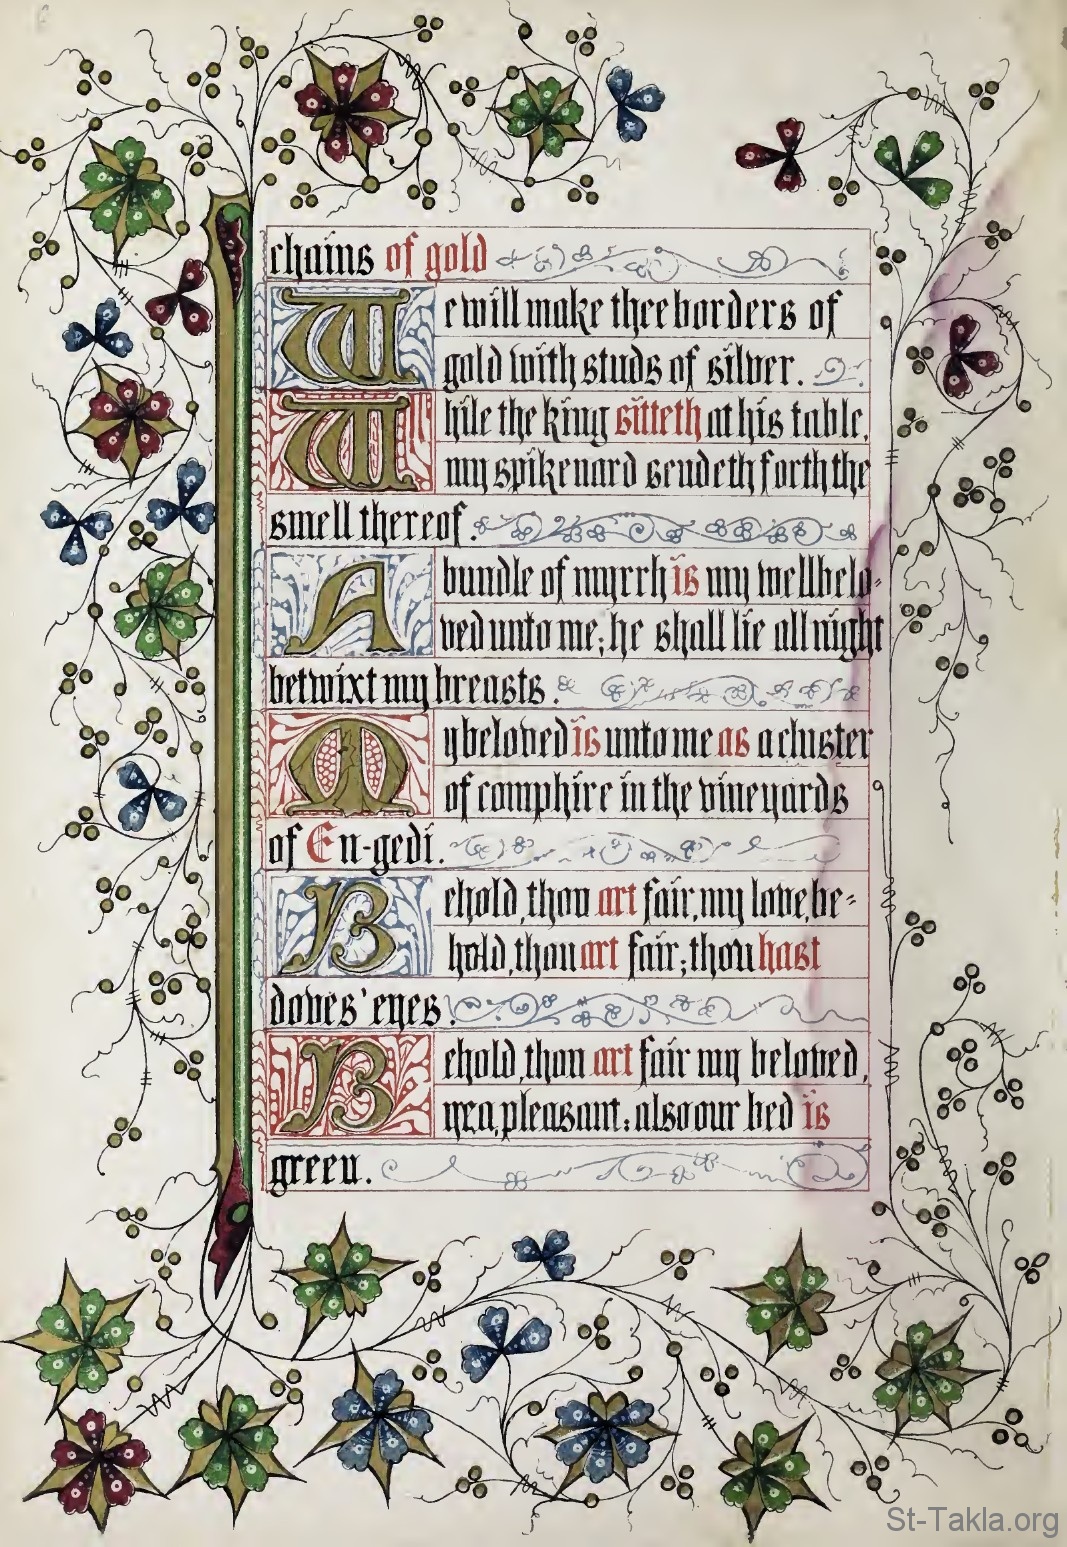 chains of gold
We will make thee borders of
gold with studs of silver.
While the king sitteth at his table,
my spikenard sendeth forth the
smell thereof.
A bundle of myrrh is my wellbelo=
ved unto me; he shall lie all night
betwixt my breasts.
My beloved is unto me as a cluster
of camphire in the vineyards
of En-gedi.
Behold, thou art fair, my love, be=
hold, thou art fair; thou hast
doves' eyes.
Behold, thou art fair my beloved,
yea, pleasant: also our bed is
green.
St-Takla.org